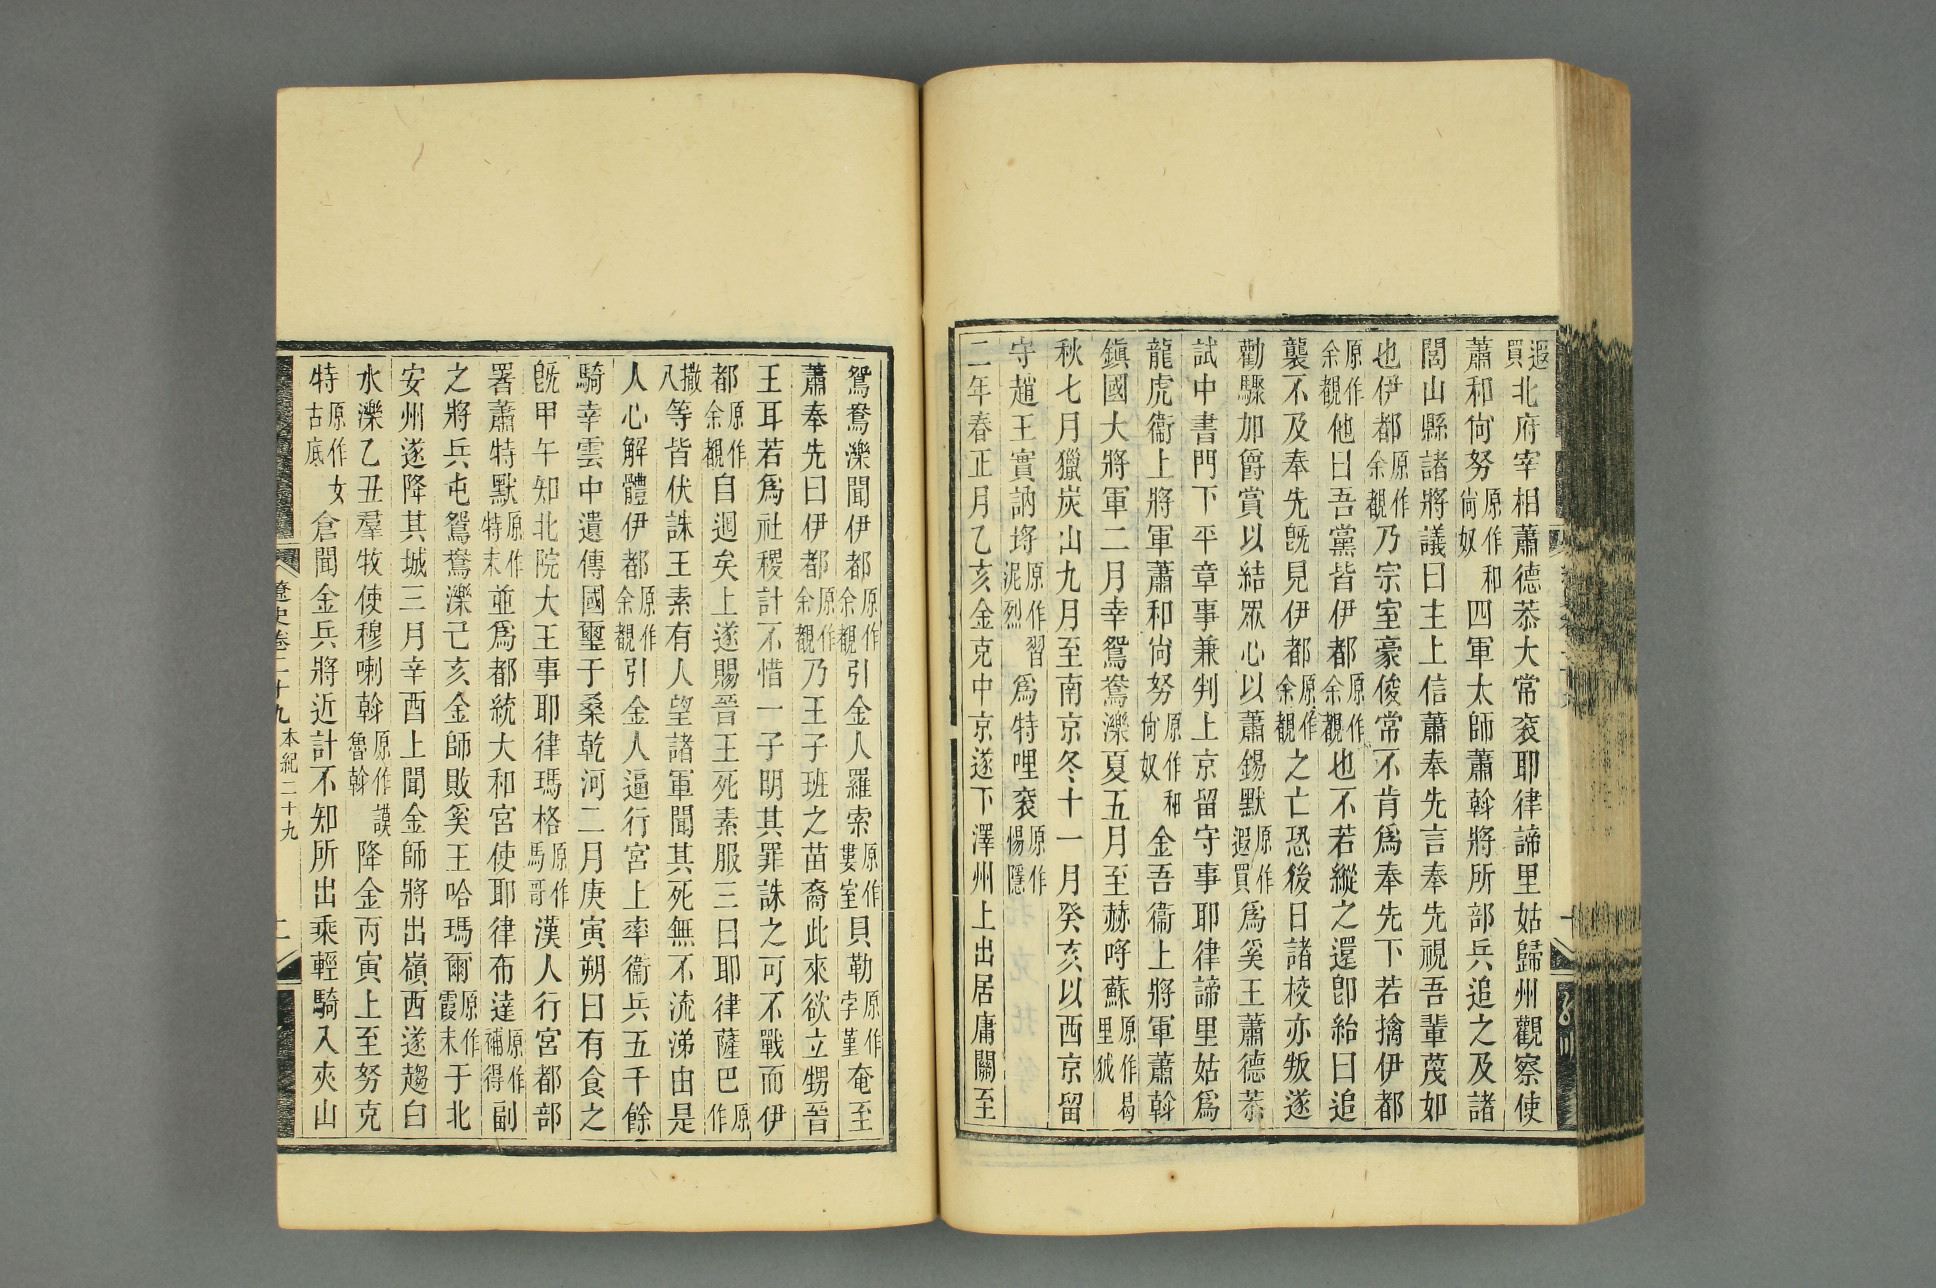 遐買北府宰相蕭德恭大常袞耶律諦里姑歸州觀察使
蕭和尙努原作和尙奴四軍太師蕭斡將所部兵追之及諸
閭山縣諸將議曰主上信蕭奉先言奉先視吾輩蔑如
也伊都原作余覩乃宗室豪俊常不肯爲奉先下若擒伊都
原作余覩他日吾黨皆伊都原作余覩也不若縱之還卽紿曰追
襲不及奉先旣見伊都原作余覩之亡恐後日諸校亦叛遂
勸驟加爵賞以結眾心以蕭錫默原作遐買爲奚王蕭德恭
試中書門下平章事兼判上京留守事耶律諦里姑爲
龍虎衞上將軍蕭和尙努原作和尙奴金吾衞上將軍蕭斡
鎭國大將軍二月幸鴛鴦濼夏五月至赫哷蘇原作曷里狘
秋七月獵炭山九月至南京冬十一月癸亥以西京留
守趙王實訥埒原作習泥烈爲特哩袞原作惕隱
二年春正月乙亥金克中京遂下澤州上出居庸關至
鴛鴦濼聞伊都原作余覩引金人羅索原作婁室貝勒原作孛堇奄至
蕭奉先曰伊都原作余覩乃王子班之苗裔此來欲立甥晉
王耳若爲社稷計不惜一子明其罪誅之可不戰而伊
都原作余覩自迴矣上遂賜晉王死素服三日耶律薩巴原作
撒八等皆伏誅王素有人望諸軍聞其死無不流涕由是
人心解體伊都原作余覩引金人逼行宮上率衞兵五千餘
騎幸雲中遺傳國璽于桑乾河二月庚寅朔日有食之
旣甲午知北院大王事耶律瑪格原作馬哥漢人行宮都部
署蕭特默原作特末並爲都統大和宮使耶律布達原作補得副
之將兵屯鴛鴦濼己亥金師敗奚王哈瑪爾原作霞末于北
安州遂降其城三月辛酉上聞金師將出嶺西遂趨白
水濼乙丑羣牧使穆喇斡原作謨魯斡降金丙寅上至努克
特原作女古底倉聞金兵將近計不知所出乘輕騎入夾山
遼史卷二十九 本紀二十九 二